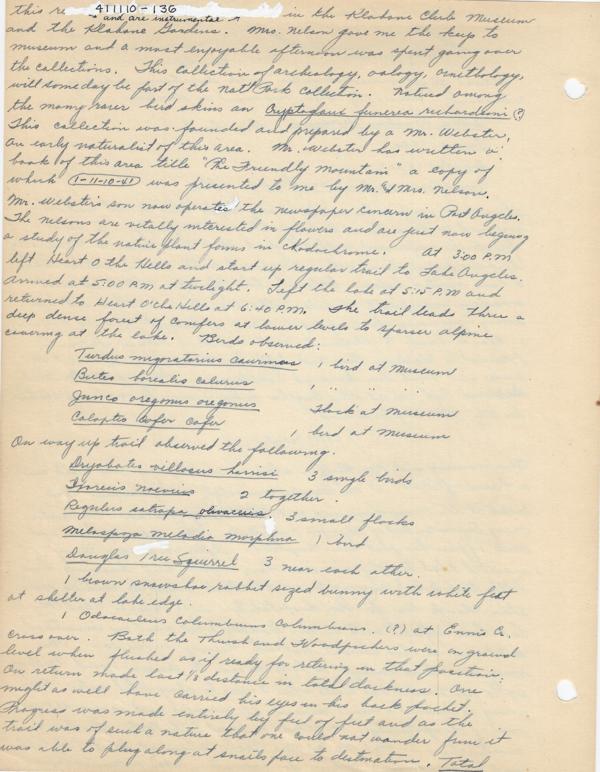 this re 411110-136 in the Klahane Club Museum
and are instrumental
and the Klahane Gardens. Mrs. Nelson gave me the keep to
museum and a most enjoyable afternoon was spent going over
the collections. This collection of archeology, oology, ornithology,
will someday be part of the Nat'l Park Collection. Noticed among
the many rarer bird skins an Cryptoglaux funerea richardsoni (?)
This collection was founded and prepared by a Mr. Webster,
an early naturalist of this area. Mr. Webster has written a
book of this area title "The Friendly Mountain" a copy of
which (1-11-10-41) was presented to me by Mr. & Mrs. Nelson.
Mr. Webster's son now operates the newspaper concern in Port Angeles.
The Nelsons are vitally interested in flowers and are just now begining
a study of the native plant forms in Kodachrome. At 3:00 P.M
left Heart O the Hills and start up regular trail to Lake Angeles.
Arrived at 5:00 P.M at twilight. Left the lake at 5:15 P.M and
returned to Heart O'the Hills at 6:40 P.M. The trail leads thru a
deep dense forest of conifers at lower levels to sparser alpine
covering at the lake. Birds observed:
Turdus migratorius caurinus 1 bird at Museum
Buteo borealis calurus 1 " " "
Junco oregonus oregonus Flock at Museum
Colaptes cafer cafer 1 bird at Museum
On way up trail observed the following.
Dryobates villosus harrisi 3 single birds
Ixoreus naevius 2 together.
Regulus satrapa olivaceus. 3 small flocks
Melospiza melodia morphna 1 bird
Douglas Tree Squirrel 3 near each other.
1 brown snowshoe rabbit sized bunny with white feet
at shelter at lake edge.
1 Odocoileus Columbianus Columbianus. (?) at Ennis Cr.
crossover. Both the Thrush and Woodpeckers were on ground
level when flushed as if ready for retiring in that position.
On return made last 1/3 distance in total darkness. One
might as well have carried his eyes in his back pocket.
Progress was made entirely by feel of feet and as the
trail was of such a nature that one could not wander from it
was able to plug along at snails pace to destination. Total